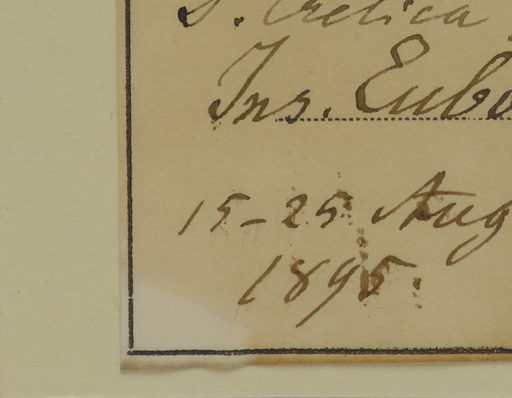 S. Cretica
Ins. Eubo
15-25 Aug
1895.